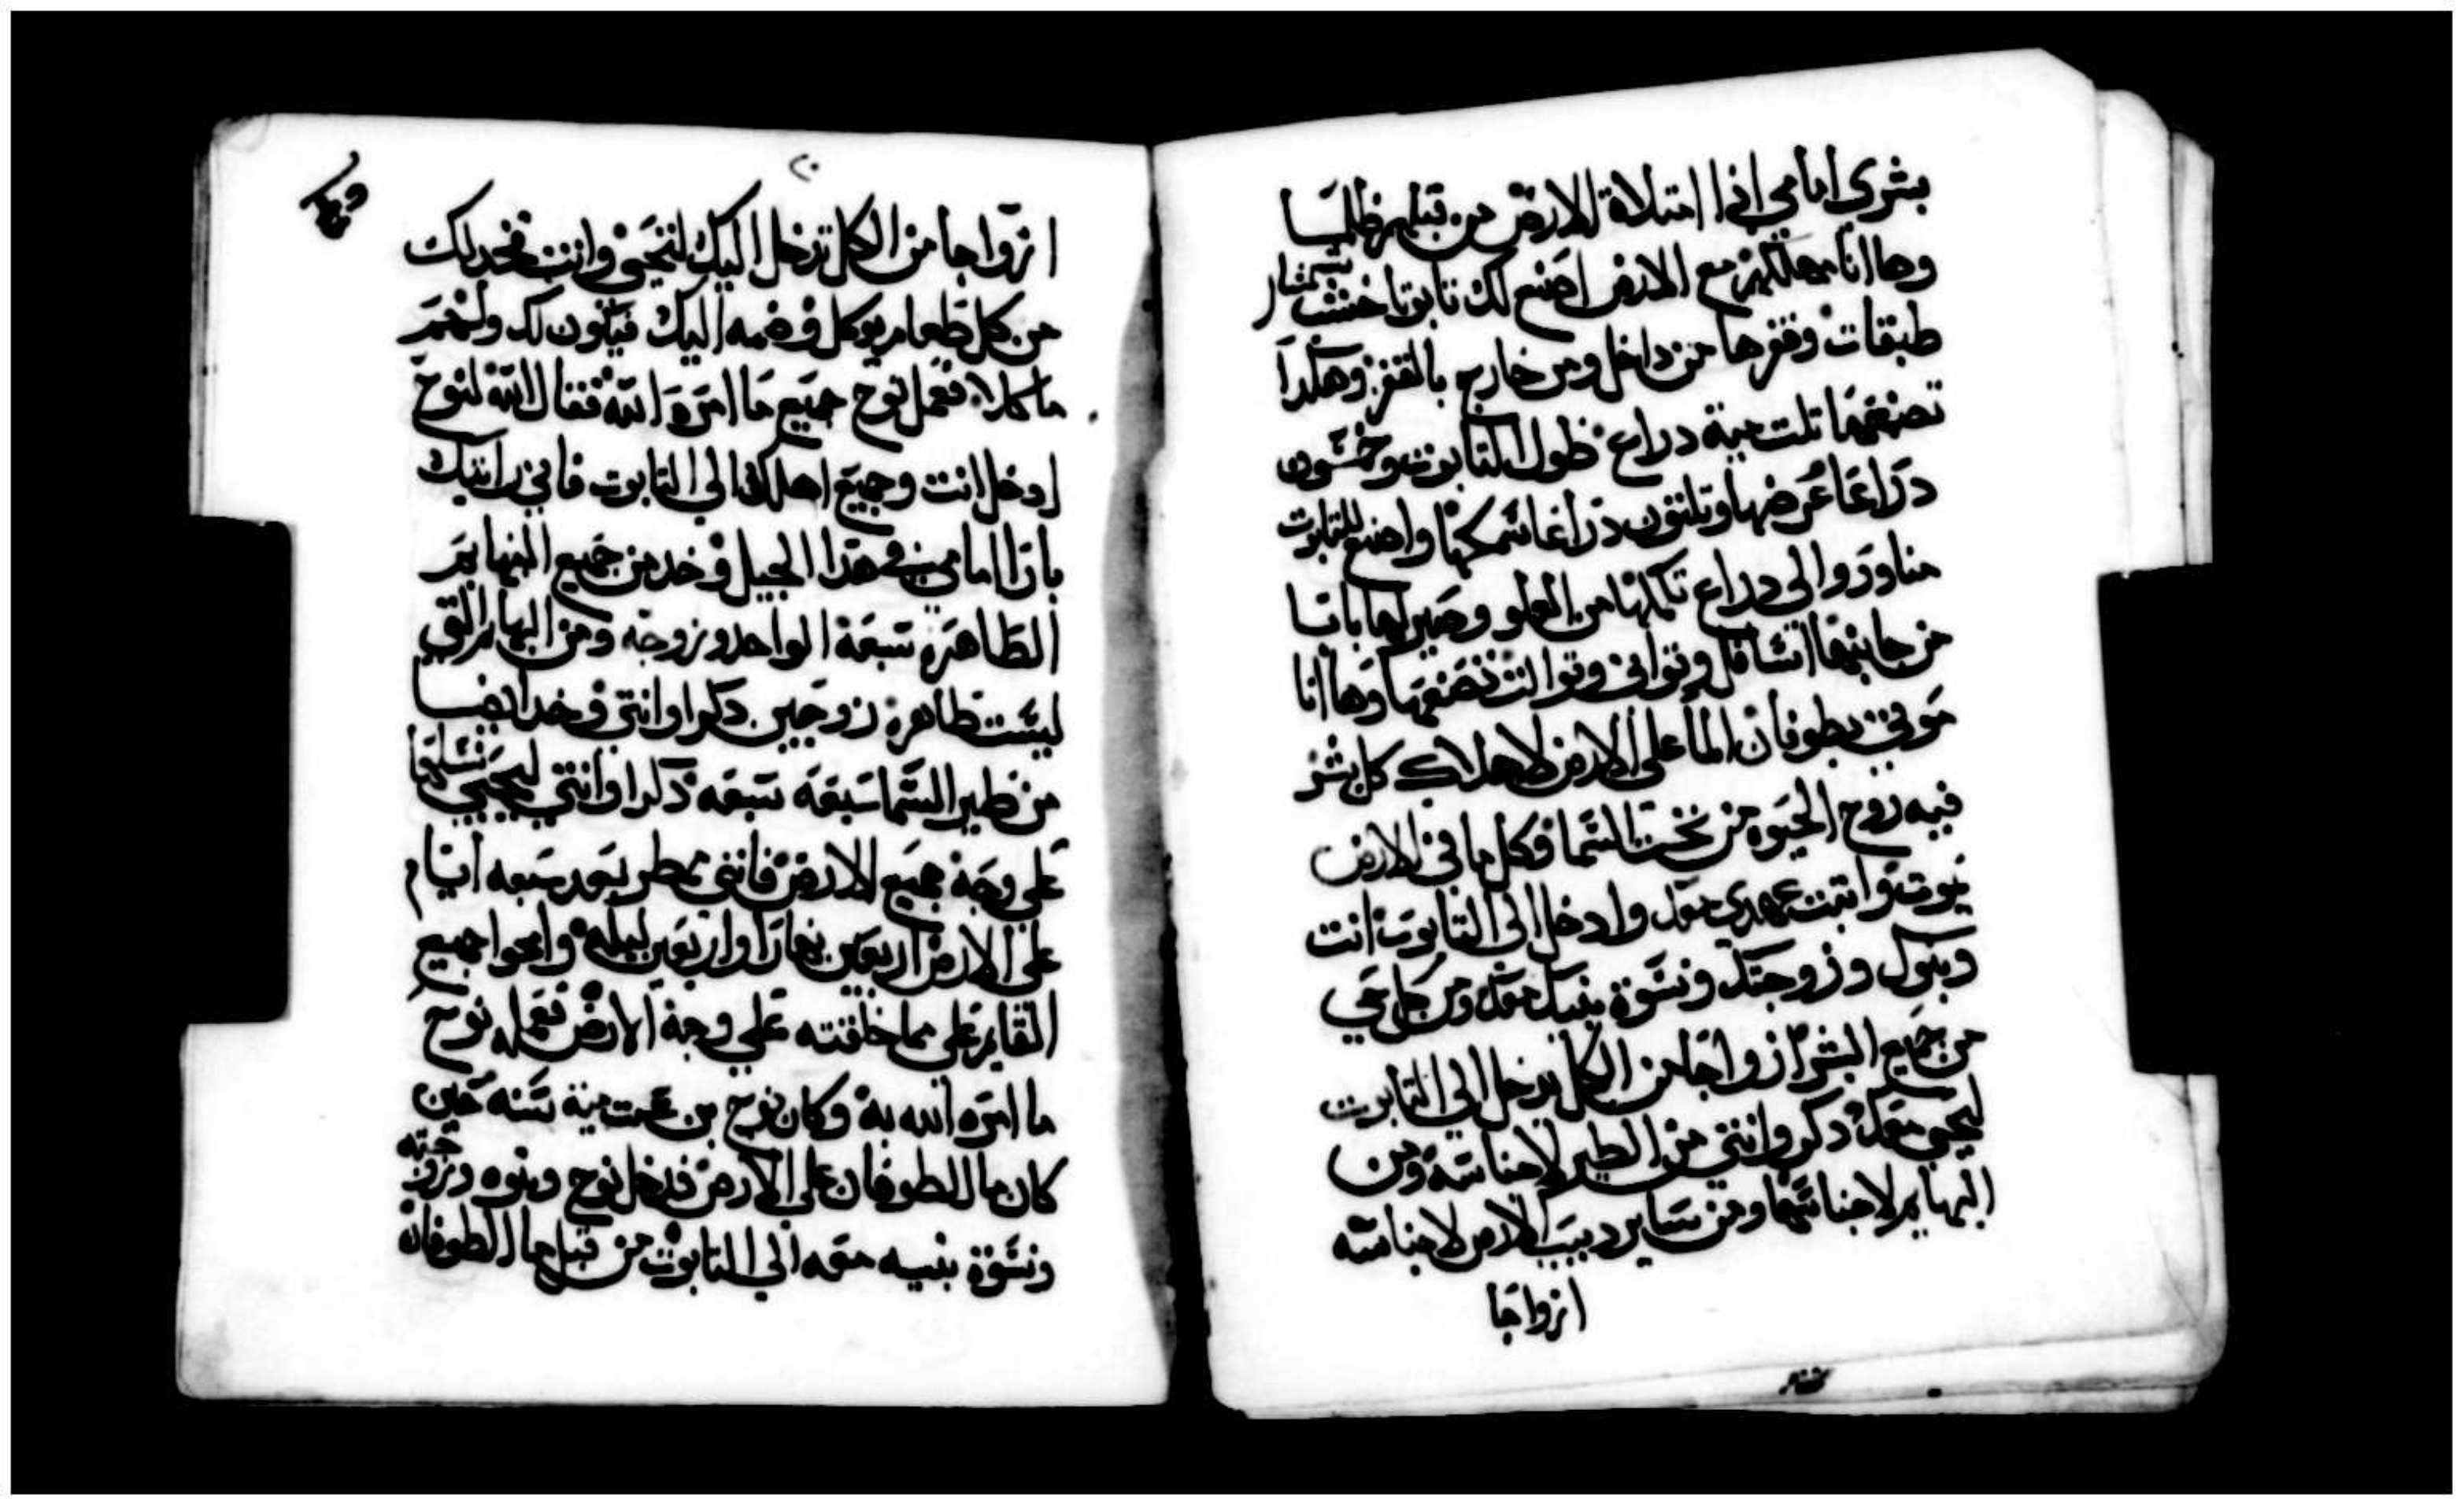 بشري امامي اذا امتلاة الارض من قبلهم ظلما
وها انا مهلكهم مع الارض اصنع لك تابوتا خشب شمشار
طبقات وقفرها من داخل ومن خارج بالقفر وهكدا
تصنعها تلت مية دراع طول التابوت وخمسون
دراعا عرضها وتلتون دراعا سمكها واصنع للتابوت
مناور والى دراع تكملها من العلو وصير لها بابا
من جانبها اسافل وتواني وتوالت تصنعها وها انا
موتي بطوفان الما على الارض لاهلاك كل بشر
فيه روح الحيوه من تحت السما وكل ما في الارض
يموت واتبت عهدي معك وادخل الى التابوت انت
وبنوك وزوجتك ونسوة بنيك معك ومن كل حي
من جميع البشر ازواجا من الكل يدخل الي التابوت
ليحيي معك دكر وانتي من الطير لاجناسه ومن
البهايم لاجناسها ومن ساير دبيب الارض لاجناسه
ازواجا
٢٠
ازواجا من الكل تدخل اليك لتحيي وانت فخد لك
من كل طعام يوكل وضمه اليك فيكون لك ولهم
ماكلا فعمل نوح جميع ما امره الله فقال الله لنوح
ادخل انت وجميع اهلك الي التابوت فاني رايتك
بارا امامي في هدا الجيل وخد من جميع البهايم
الطاهره سبعة الواحد وزوجه ومن البهايم التي
ليست طاهره زوجين دكرا وانتي وخد ايضا
من طير السما سبعه سبعه دكرا وانتي ليحيي نسلها
علي وجه جميع الارض فانني ممطر بعد سبعه ايام
على الارض اربعين نهارا واربعين ليله وامحوا جميع
القايم علي مما خلقته علي وجه الارض فعمل نوح
ما امره الله به وكان نوح بن ست مية سنه حين
كان ما الطوفان على الارض فدخل نوح وبنوه وزوجته
ونسوة بنيه معه الي التابوت من قبل ما الطوفان